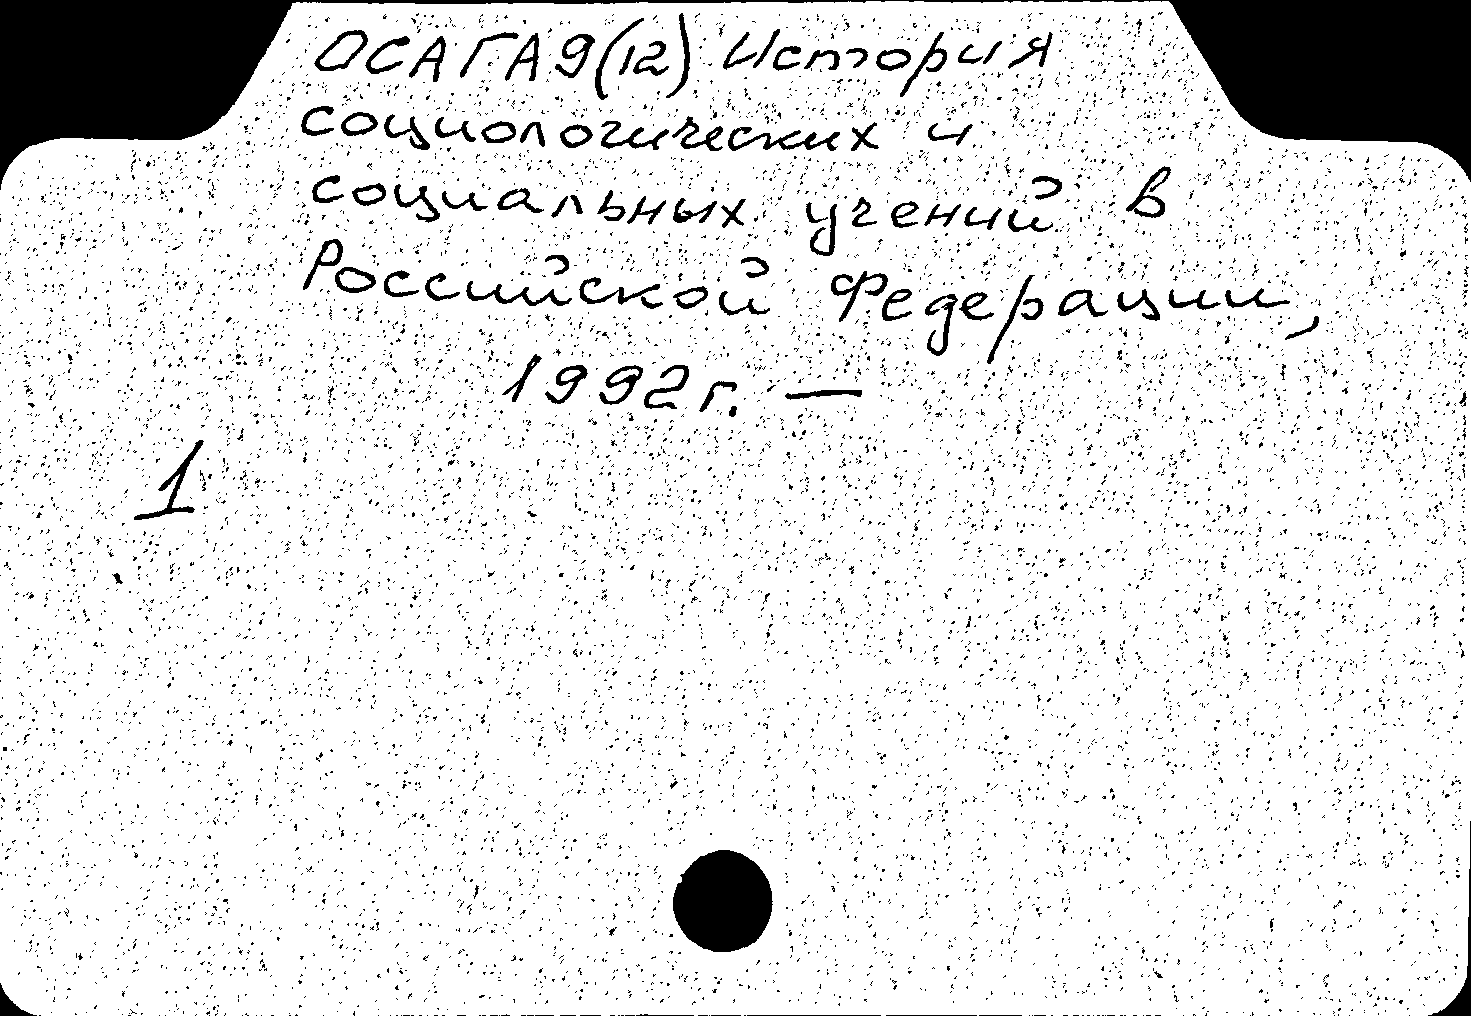 ОСАГА9(12) История
социологических и
социальных учений в
Российской Федерации,
1992г. —
1